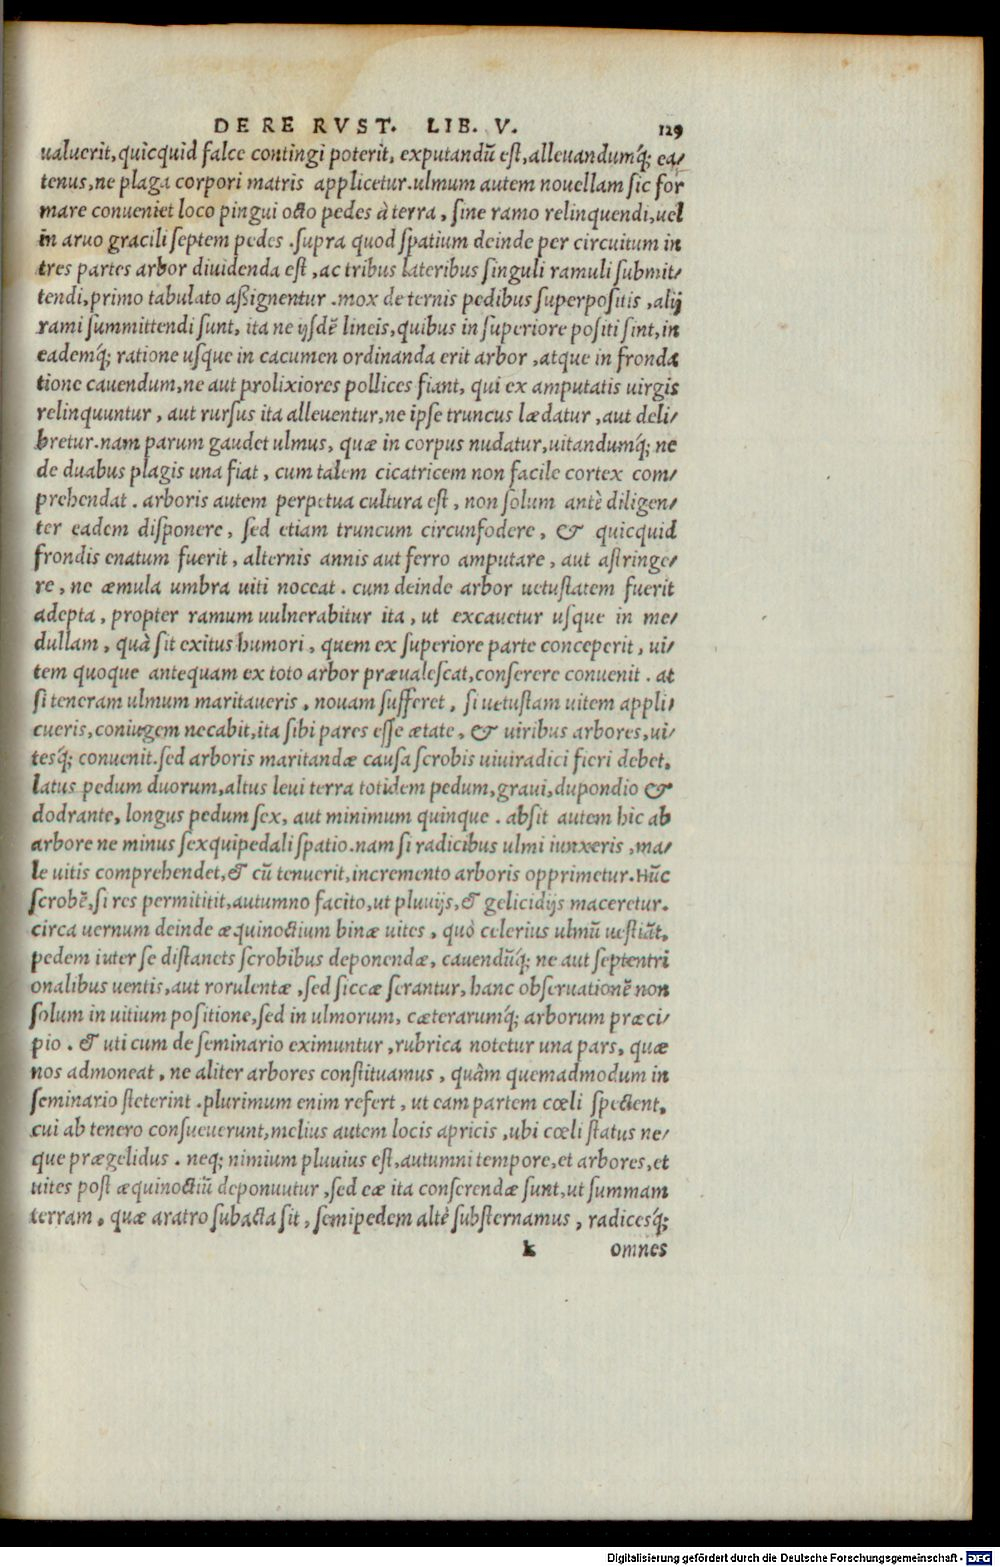 DE RE RVST. LIB. V. 129
ualuerit, quicquid falce contingi poterit, exputandū est, alleuandumq́; ea/
tenus, ne plaga corpori matris applicetur. ulmum autem nouellam sic for
mare conueniet loco pingui octo pedes à terra, sine ramo relinquendi, uel
in aruo gracili septem pedes. supra quod spatium deinde per circuitum in
tres partes arbor diuidenda est, ac tribus lateribus singuli ramuli submit/
tendi, primo tabulato aßignentur. mox de ternis pedibus superpositis, alij
rami summittendi sunt, ita ne ijsdē lineis, quibus in superiore positi sint, in
eademq́; ratione usque in cacumen ordinanda erit arbor, atque in fronda
tione cauendum, ne aut prolixiores pollices fiant, qui ex amputatis uirgis
relinquuntur, aut rursus ita alleuentur, ne ipse truncus lædatur, aut deli/
bretur. nam parum gaudet ulmus, quæ in corpus nudatur, uitandumq́; ne
de duabus plagis una fiat, cum talem cicatricem non facile cortex com/
prehendat. arboris autem perpetua cultura est, non solum antè diligen/
ter eadem disponere, sed etiam truncum circunfodere, & quicquid
frondis enatum fuerit, alternis annis aut ferro amputare, aut astringe/
re, ne æmula umbra uiti noceat. cum deinde arbor uetustatem fuerit
adepta, propter ramum uulnerabitur ita, ut excauetur usque in me/
dullam, quà sit exitus humori, quem ex superiore parte conceperit, ui/
tem quoque antequam ex toto arbor præualescat, conserere conuenit. at
si teneram ulmum maritaueris, nouam sufferet, si uetustam uitem appli/
cueris, coniugem necabit, ita sibi pares esse ætate, & uiribus arbores, ui/
tesq́; conuenit. sed arboris maritandæ causa scrobis uiuiradici fieri debet,
latus pedum duorum, altus leui terra totidem pedum, graui, dupondio &
dodrante, longus pedum sex, aut minimum quinque. absit autem hic ab
arbore ne minus sexquipedali spatio. nam si radicibus ulmi iunxeris, ma/
le uitis comprehendet, & cū tenuerit, incremento arboris opprimetur. Hūc
scrobē, si res permititit, autumno facito, ut pluuijs, & gelicidijs maceretur.
circa uernum deinde æquinoctium binæ uites, quò celerius ulmū uestiāt,
pedem iuter se distancts scrobibus deponendæ, cauendūq́; ne aut septentri
onalibus uentis, aut rorulentæ, sed siccæ serantur, hanc obseruationē non
solum in uitium positione, sed in ulmorum, cæterarumq́; arborum præci/
pio. & uti cum de seminario eximuntur, rubrica notetur una pars, quæ
nos admoneat, ne aliter arbores constituamus, quàm quemadmodum in
seminario steterint. plurimum enim refert, ut eam partem cœli spectent,
cui ab tenero consueuerunt, melius autem locis apricis, ubi cœli status ne/
que prægelidus. neq; nimium pluuius est, autumni tempore, et arbores, et
uites post æquinoctiū deponuutur, sed eæ ita conserendæ sunt, ut summam
terram, quæ aratro subacta sit, semipedem altè substernamus, radicesq́;
k omnes
Digitalisierung gefördert durch die Deutsche Forschungsgemeinschaft - DFG